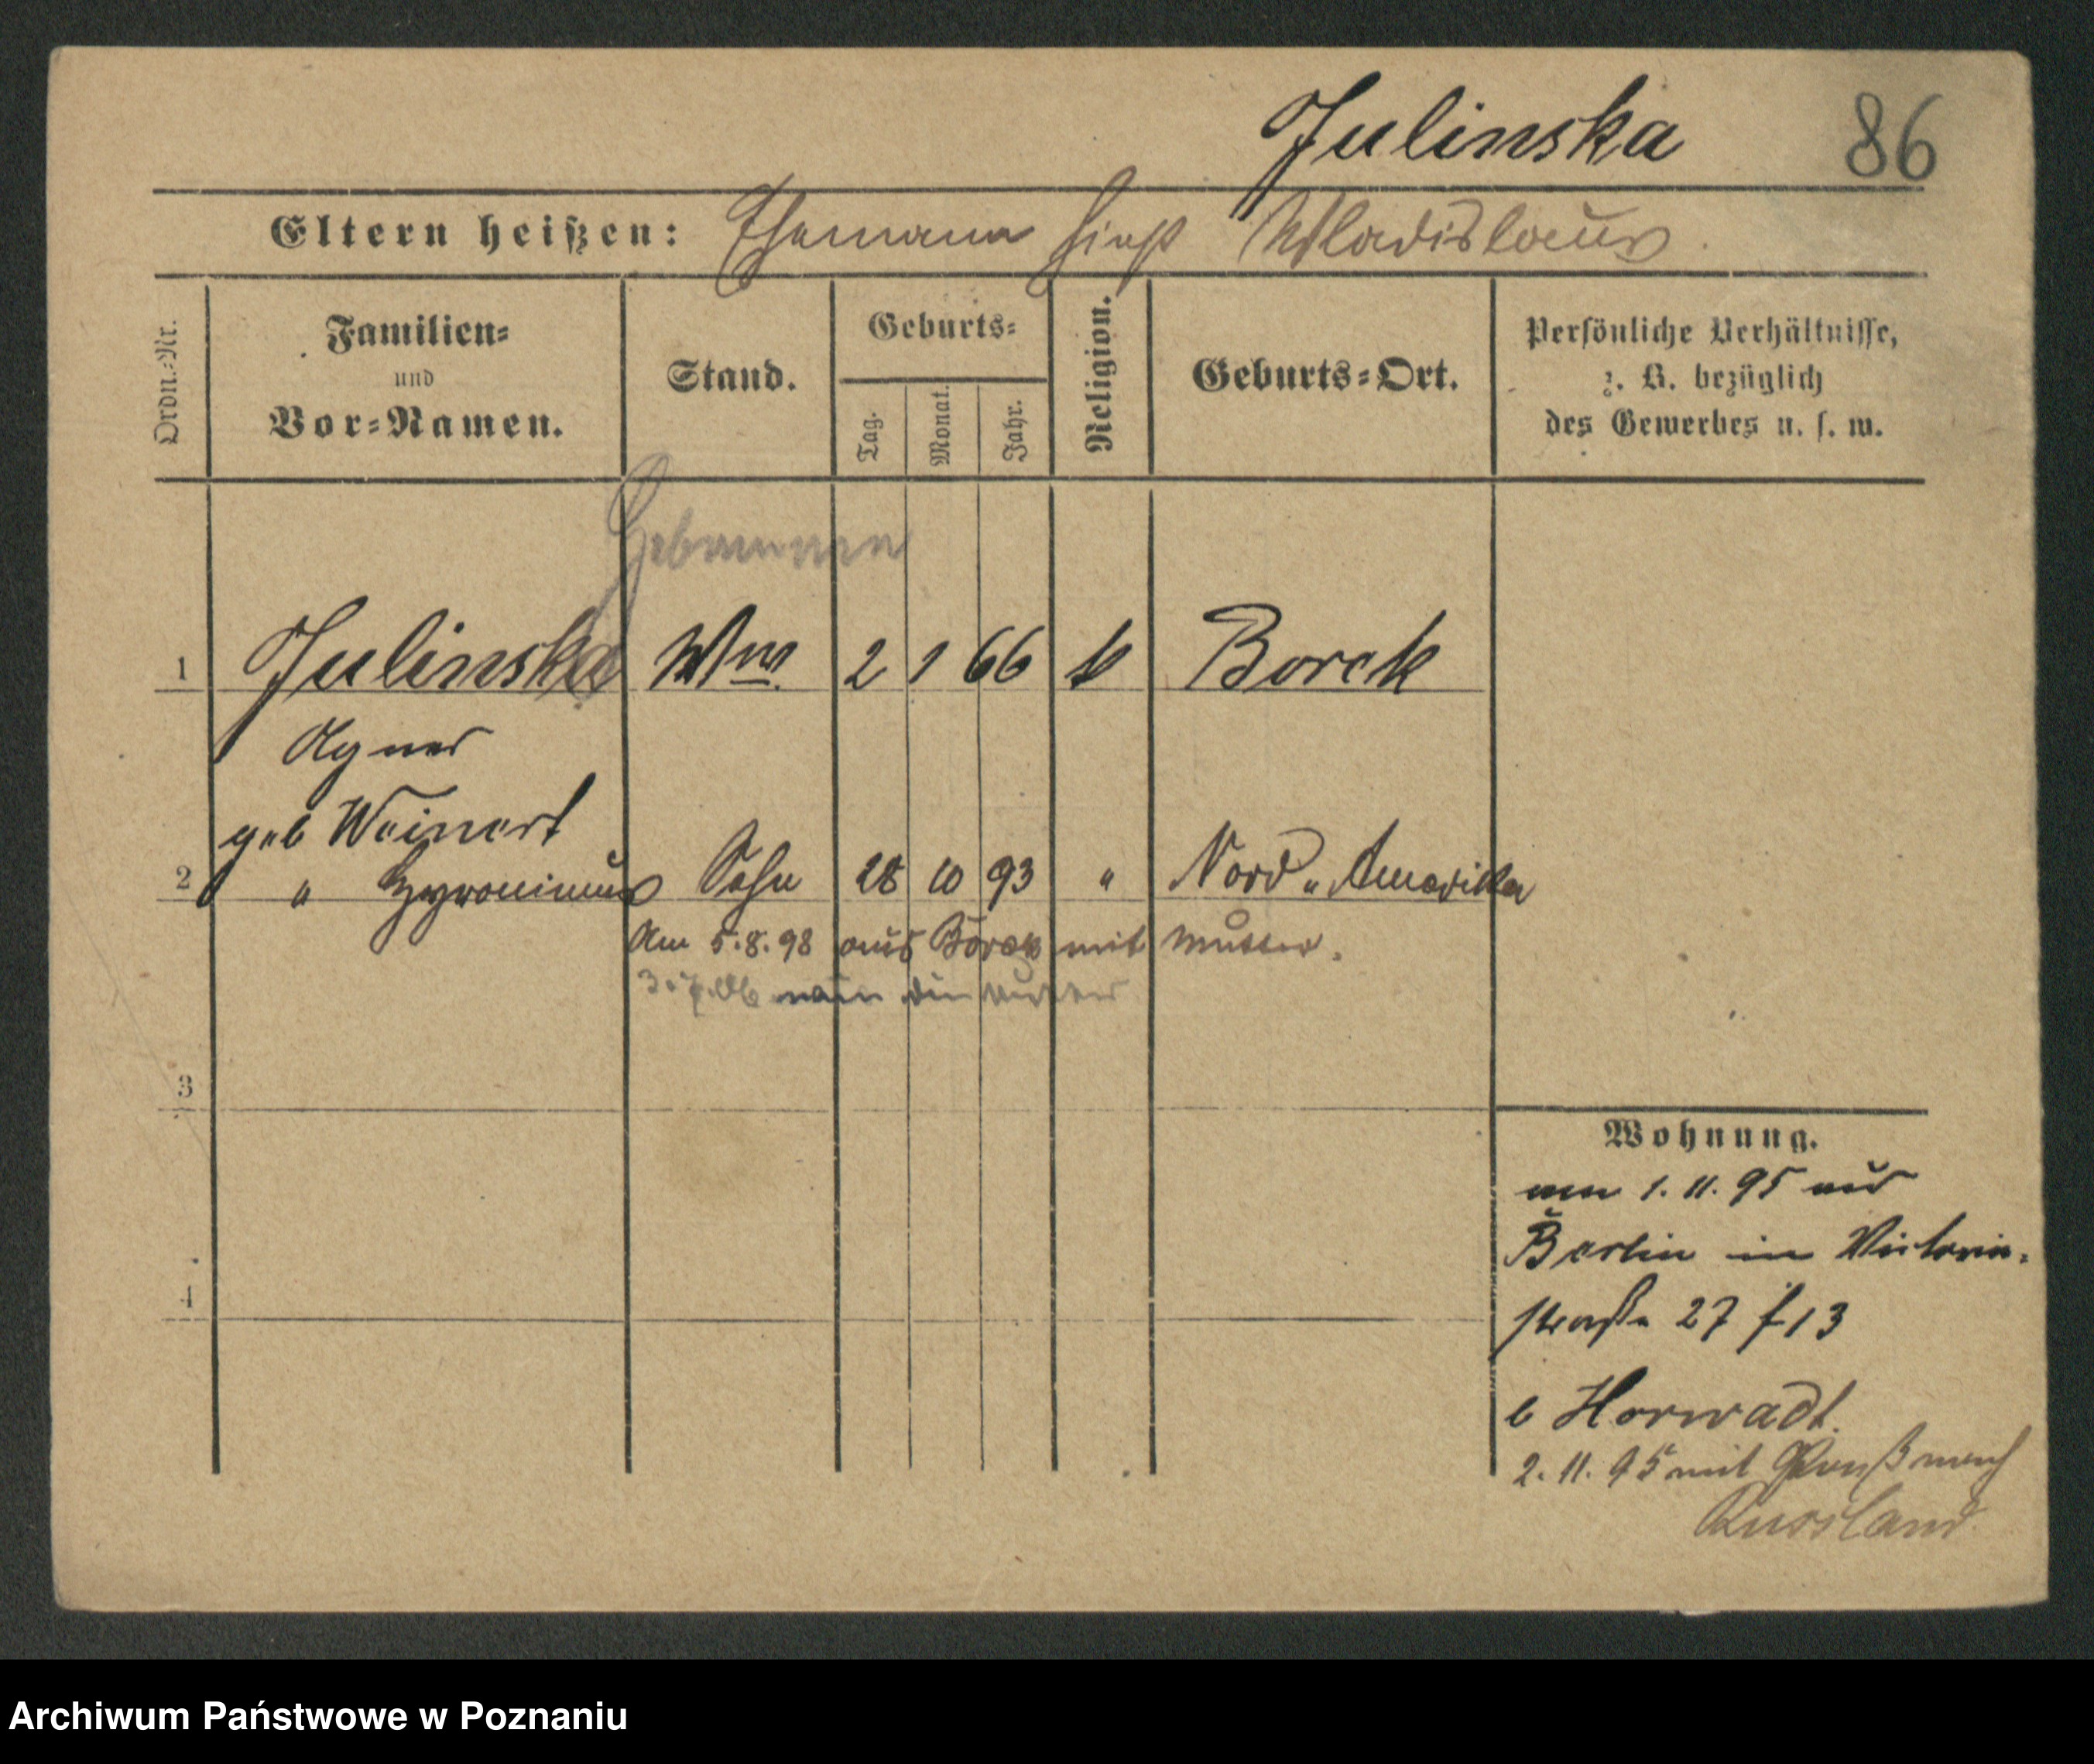 Julinska 86
Eltern heißen: Ehemann hieß Wladislaus.
Ordn.-Nr.
Familien-
und
Vor-Namen.
Stand.
Geburts-
Tag.
Monat.
Jahr.
Religion.
Geburts-Ort.
Persönliche Verhältnisse,
z. B. bezüglich
des Gewerbes u. s. w.
Hebamme
1 Julinska Ww 2 1 66 k Borek
Agnes
geb Weinert
2 " Hyronimus Sohn 28 10 93 " Nord-Amerika
Am 5.8.98 aus Borek mit Mutter.
3.7.06
3
4
Wohnung.
am 1.11.95 aus
Berlin in Victoria-
straße 27 f 13
b Horwadt.
2.11.95 mit nach
Russland
Archiwum Państwowe w Poznaniu